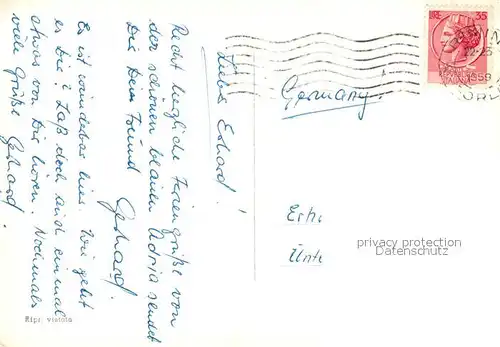 Lieber Erhard!
Recht herzliche Feriengrüße von
der schönen blauen Adria sendet
Dir Dein Freund
Gerhard.
Es ist wunderbar hier. Wie geht
es Dir? Laß doch auch einmal
etwas von Dir hören. Nochmals
viele Grüße Gerhard.
Ripr. vietata
LIRE 35
1959
Germany!
Erh
Unte
privacy protection
Datenschutz